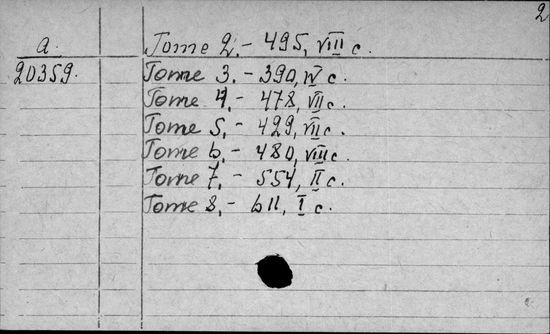 2
a.
20359.
Tome 2. - 495, VIII c.
Tome 3. - 390, IV c.
Tome 4. - 478, VII c.
Tome 5. - 429, VII c.
Tome 6. - 480, VIII c.
Tome 7. - 554, II c.
Tome 8. - 611, I c.